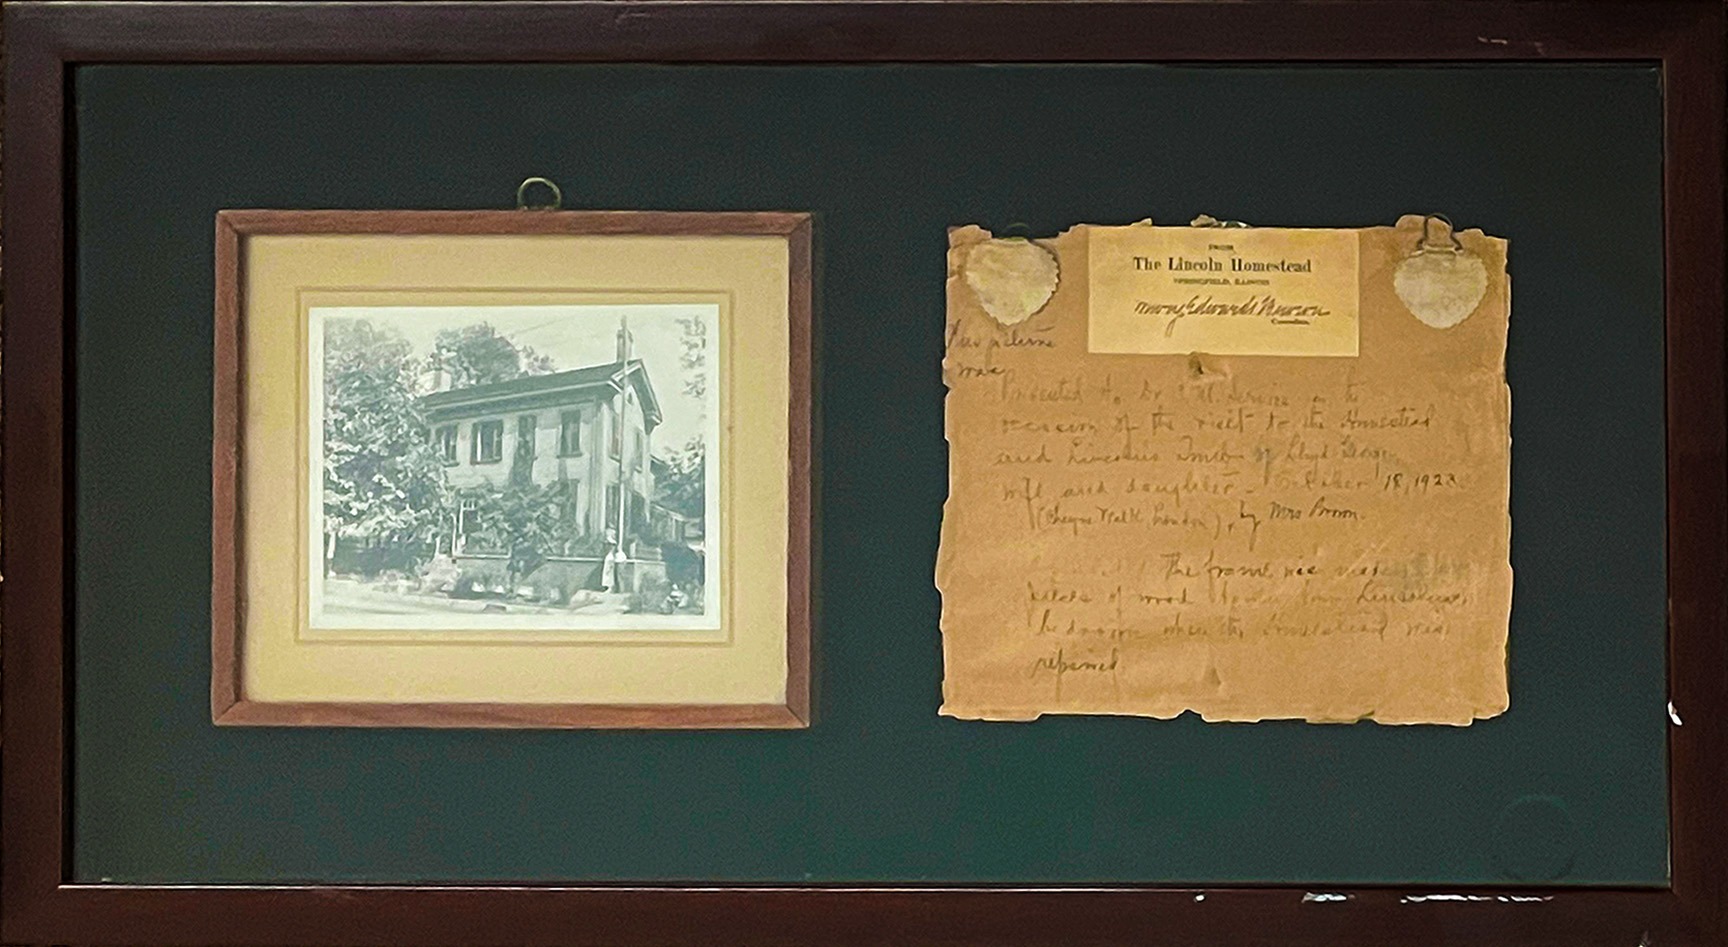 FROM
The Lincoln Homestead
SPRINGFIELD, ILLINOIS
Mary Edwards Brown
Custodian.
This picture
was
Presented to Dr. Service on the
occasion of the visit to the Homestead
and Lincoln's Tomb of Lloyd George,
wife and daughter - October 18, 1923
(Cheyne Walk, London), by Mrs Brown.
The frame was made
pieces of wood from Lincoln's
bedroom when the Homestead was
repaired.